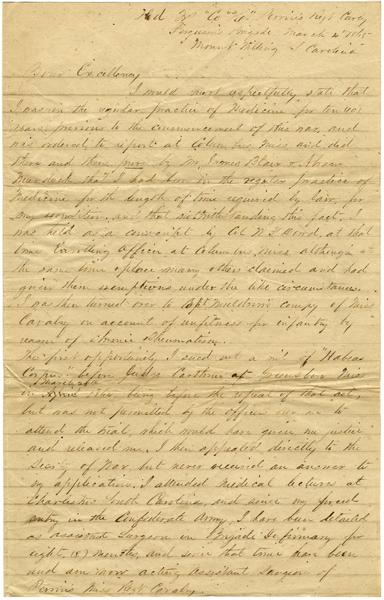 Hd Qr "Co "G" Perrin's Regt Cavly
Ferguson's Brigade March 4th 1865
Mount Willing S Carolina
Your Excellency
I would most respectfully state that
I was in the regular practice of Medicine for ten (10)
years previous to the commencement of this war, and
was ordered to report at Columbus, Miss and did
there and then prove by Mr. James Blair &
that I had been in the regular practice of
Medicine for the length of time required by law, for
my exemption, and that notwithstanding this fact, I
was held as a conscript by Col N. L. at that
time Enrolling Officer at Columbus, Miss, although at
the same time & place many others claimed and had
given them exemptions under the like circumstances.
I was then turned over to Capt Muldrow's Compy of Miss
Cavalry on account of unfitness for infantry by
reason of chronic Rheumatism.
The first opportunity I sued out a writ of "Habeas
Corpus" before Judge at Greensboro Miss
in being before the repeal of that act,
but was not permitted by the officer over me to
attend the trial, which would have given me justice
and released me. I then appealed directly to the
Secty of War, but never received an answer to
my application. I attended medical lectures at
Charleston South Carolina, and since my forced
entry in the Confederate Army, I have been detailed
as assistant Surgeon in Brigade Infirmary for
eight (8) months, and since that time have been
and am now acting Assistant Surgeon of
Perrin's Miss Regt Cavalry.